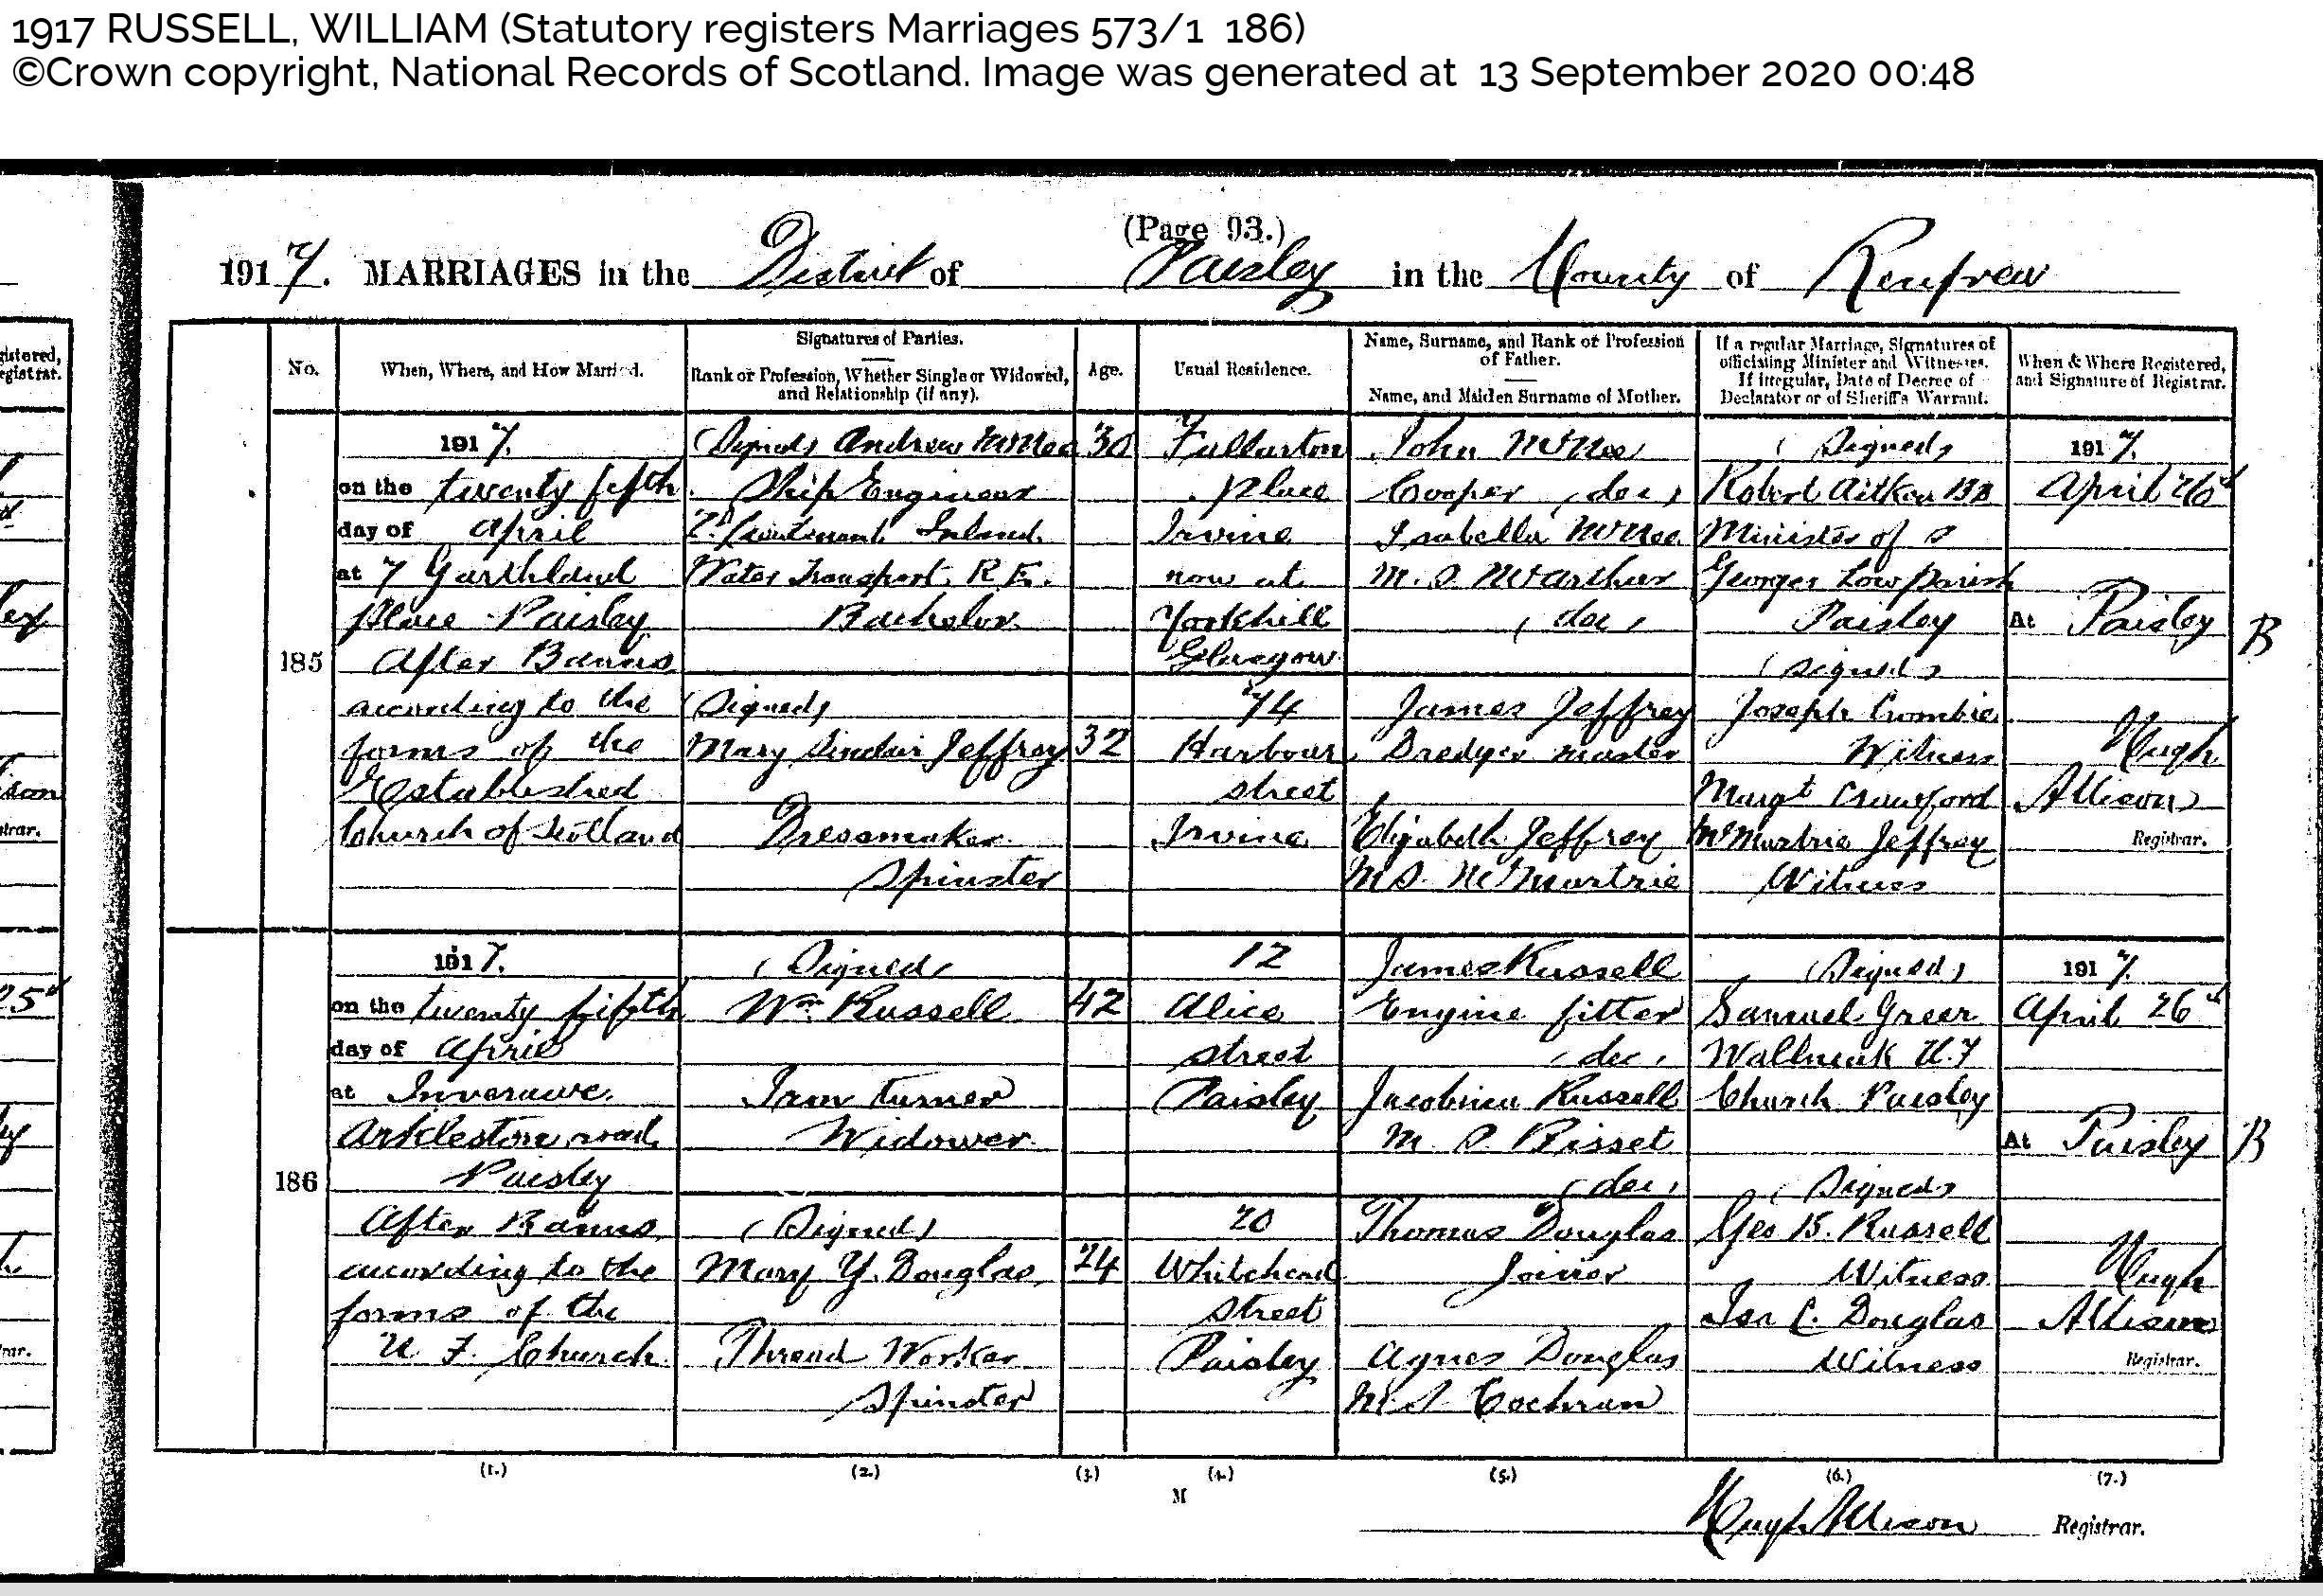 1917 RUSSELL, WILLIAM (Statutory registers Marriages 573/1 186)
©Crown copyright, National Records of Scotland. Image was generated at 13 September 2020 00:48
(Page 93.)
1917. MARRIAGES in the District of Paisley in the County of Renfrew
No.
When, Where, and How Married.
Signatures of Parties.
Rank or Profession, Whether Single or Widowed,
and Relationship (if any).
Age.
Usual Residence.
Name, Surname, and Rank or Profession
of Father.
Name, and Maiden Surname of Mother.
If a regular Marriage, Signatures of
officiating Minister and Witnesses.
If irregular, Date of Decree of
Declarator or of Sheriff's Warrant.
When & Where Registered,
and Signature of Registrar.
185
1917.
on the twenty fifth
day of April
at 7 Garthland
place Paisley
After Banns
according to the
forms of the
Established
Church of Scotland
(Signed) Andrew McNee
Ship Engineer
2d Lieutenant Inland
Water Transport R.E.
Bachelor
(Signed)
Mary Sinclair Jeffrey
Dressmaker
Spinster
30
32
Fullarton
place
Irvine
now at
Yorkhill
Glasgow
74
Harbour
street
Irvine
John McNee
Cooper (dec)
Isabella McNee
M.S. McArthur
(dec)
James Jeffrey
Dredger master
Elizabeth Jeffrey
M.S. McMurtrie
(Signed)
Robert Aitken BD
Minister of St
Georges Low parish
Paisley
(Signed)
Joseph Crombie
Witness
Margt Crawford
McMurtrie Jeffrey
Witness
1917.
April 26th
At Paisley
Hugh
Allison
Registrar.
B
186
1917.
on the twenty fifth
day of April
at Inverawe
Arkleston road
Paisley
After Banns
according to the
forms of the
U. F. Church
(Signed)
Wm Russell
Iron turner
Widower
(Signed)
Mary Y. Douglas
Thread Worker
Spinster
42
24
12
Alice
street
Paisley
20
Whitehead
street
Paisley
James Russell
Engine fitter
(dec)
Jacobina Russell
M. S. Bisset
(dec)
Thomas Douglas
Joiner
Agnes Douglas
M.S. Cochran
(Signed)
Samuel Greer
Wallneuk U.F
Church Paisley
(Signed)
Geo B. Russell
Witness
Isa C. Douglas
Witness
1917.
April 26th
At Paisley
Hugh
Allison
Registrar.
B
(1.) (2.) (3.) (4.) (5.) (6.) (7.)
M
Hugh Allison Registrar.